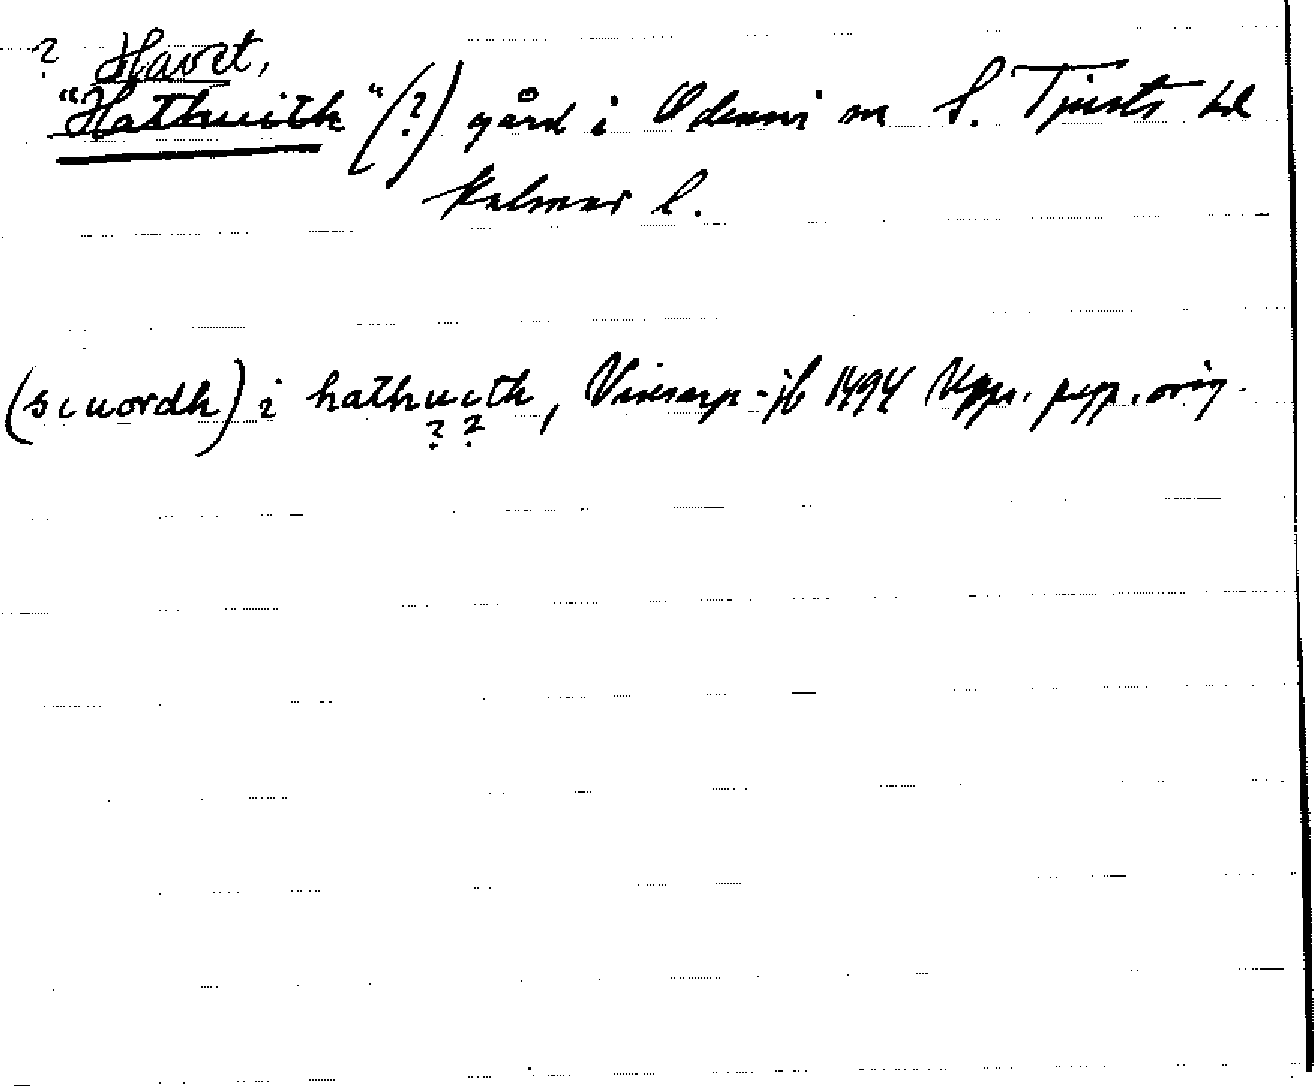 ? Havet,
"Hathuith" (?) gård i Odensvi sn S. Tjusts hd
Kalmar l.
(siuordh) i hathuith, Vinsarp-jb 1494 Upps. papp. orig.
? ?